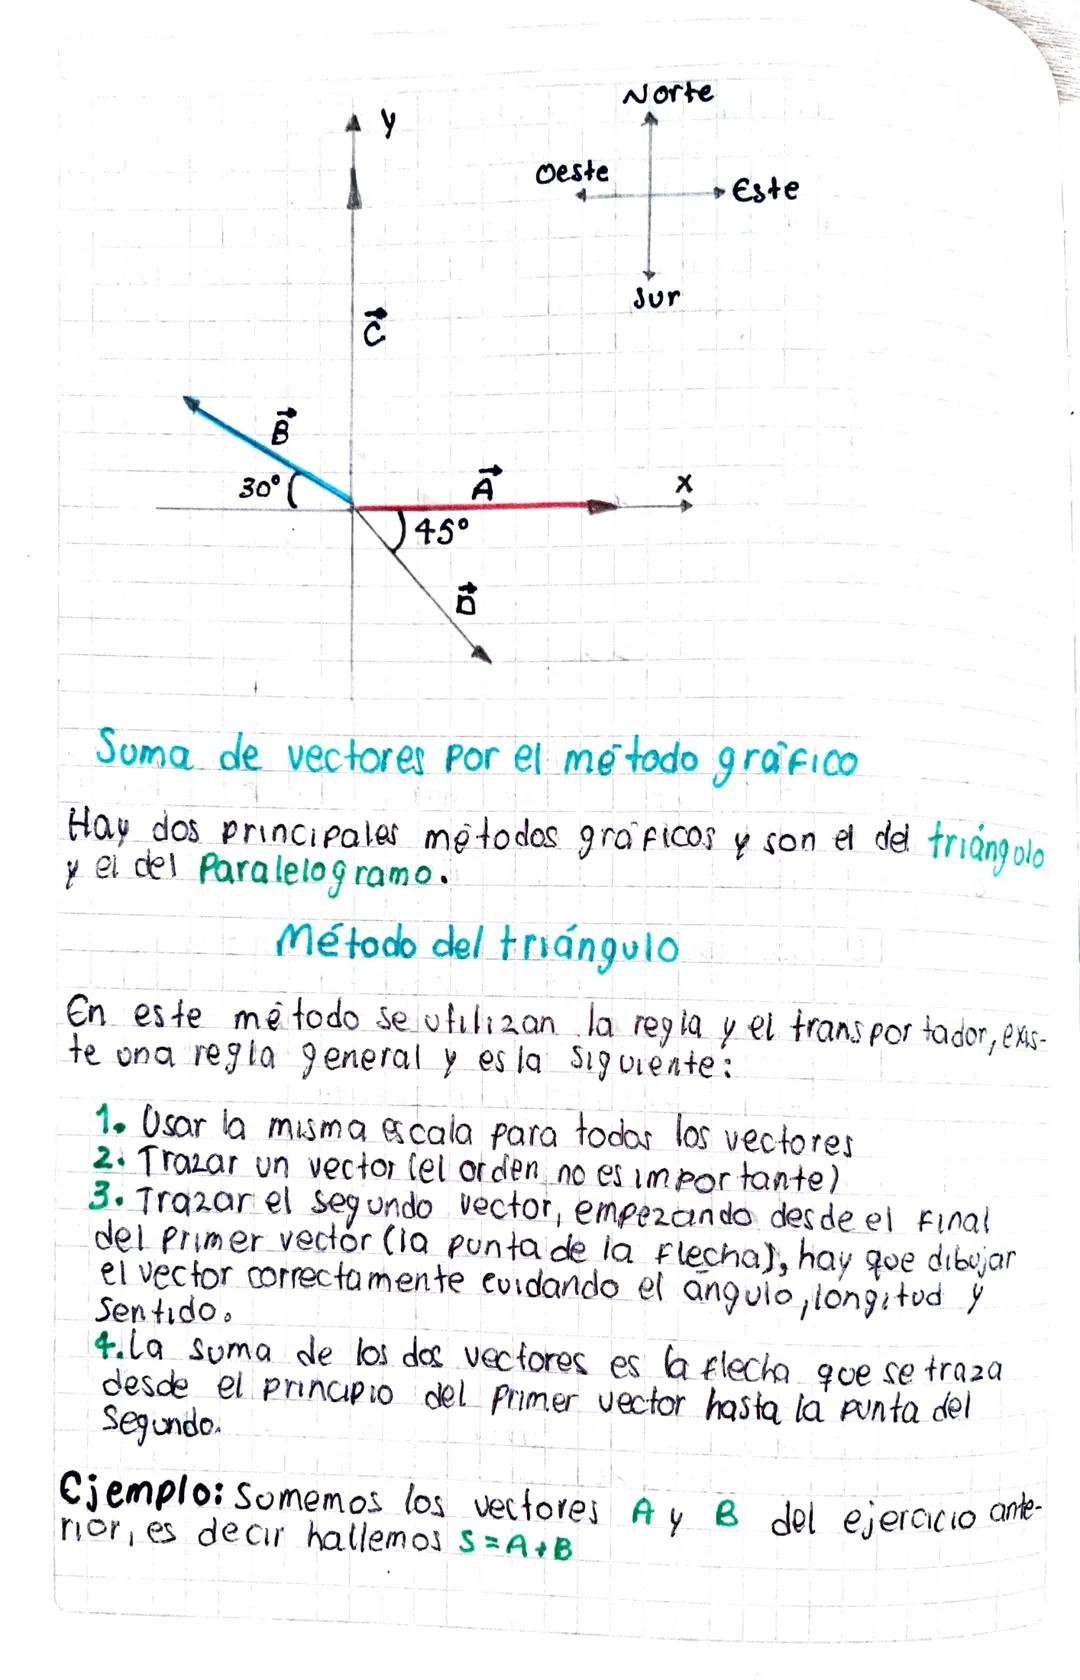 Norte
y
Oeste
Este
Sur
C
B
30°
A
x
45°
D
Suma de vectores por el método gráfico
Hay dos principales métodos gráficos y son el del triángulo
y el del Paralelogramo.
Método del triángulo
En este método se utilizan la regla y el transportador, exis-
te una regla general y es la siguiente:
1. Usar la misma escala para todos los vectores
2. Trazar un vector (el orden no es importante)
3. Trazar el segundo vector, empezando desde el final
del primer vector (la punta de la flecha), hay que dibujar
el vector correctamente cuidando el ángulo, longitud y
sentido.
4. La suma de los dos vectores es la flecha que se traza
desde el principio del primer vector hasta la punta del
segundo.
Ejemplo: Sumemos los vectores A y B del ejercicio ante-
rior, es decir hallemos S=A+B